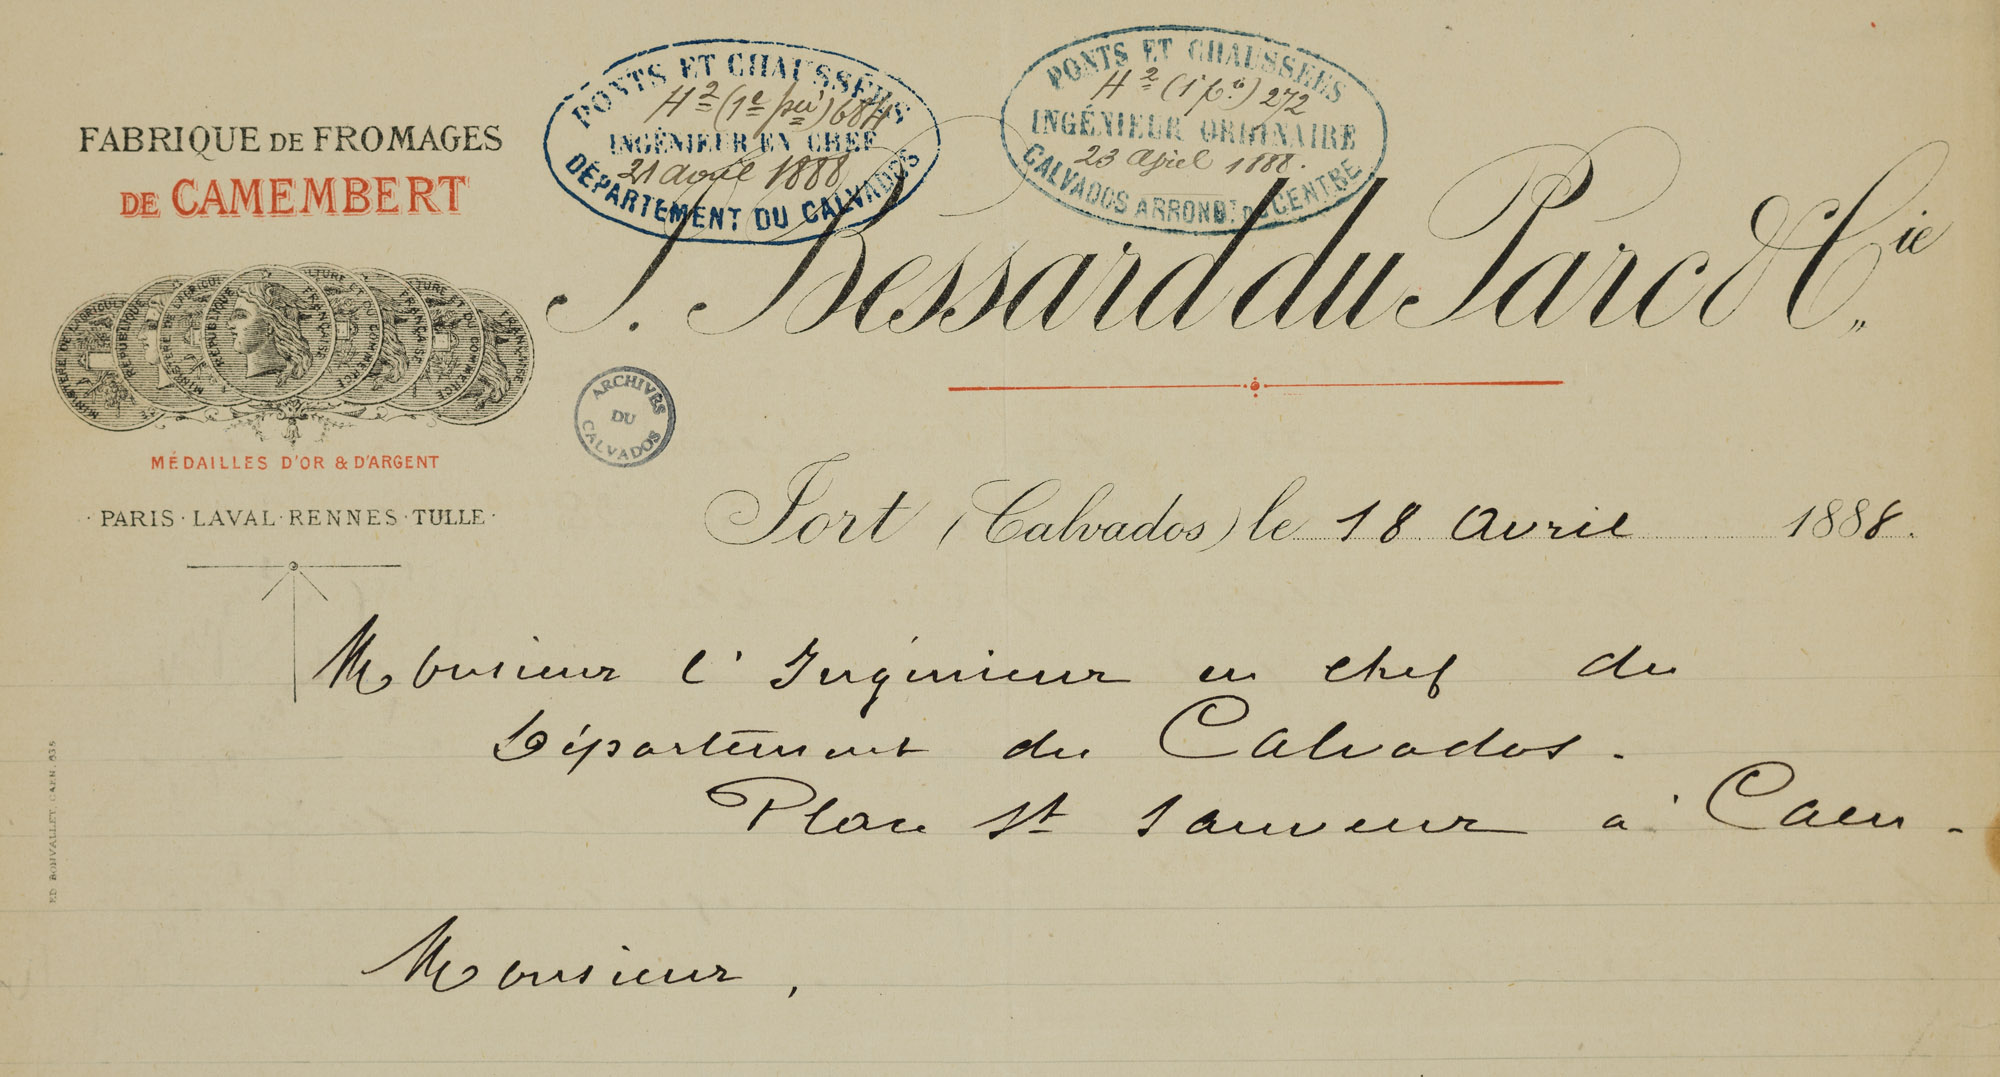 FABRIQUE DE FROMAGES
DE CAMEMBERT
MÉDAILLES D'OR & D'ARGENT
· PARIS · LAVAL · RENNES · TULLE ·
PONTS ET CHAUSSÉES
H² (1e 684
INGÉNIEUR EN CHEF
21 avril 1888
DÉPARTEMENT DU CALVADOS
PONTS ET CHAUSSÉES
H² 272
INGÉNIEUR ORDINAIRE
23 April 1888.
CALVADOS ARRONDT DU CENTRE
J. Bessard du Parc & Cie
ARCHIVES
DU
CALVADOS
Fort (Calvados) le 18 Avril 1888.
Monsieur l'Ingénieur en chef du
Département du Calvados.
Place St Sauveur à Caen.
Monsieur,
ED. BONVALLET, CAEN.